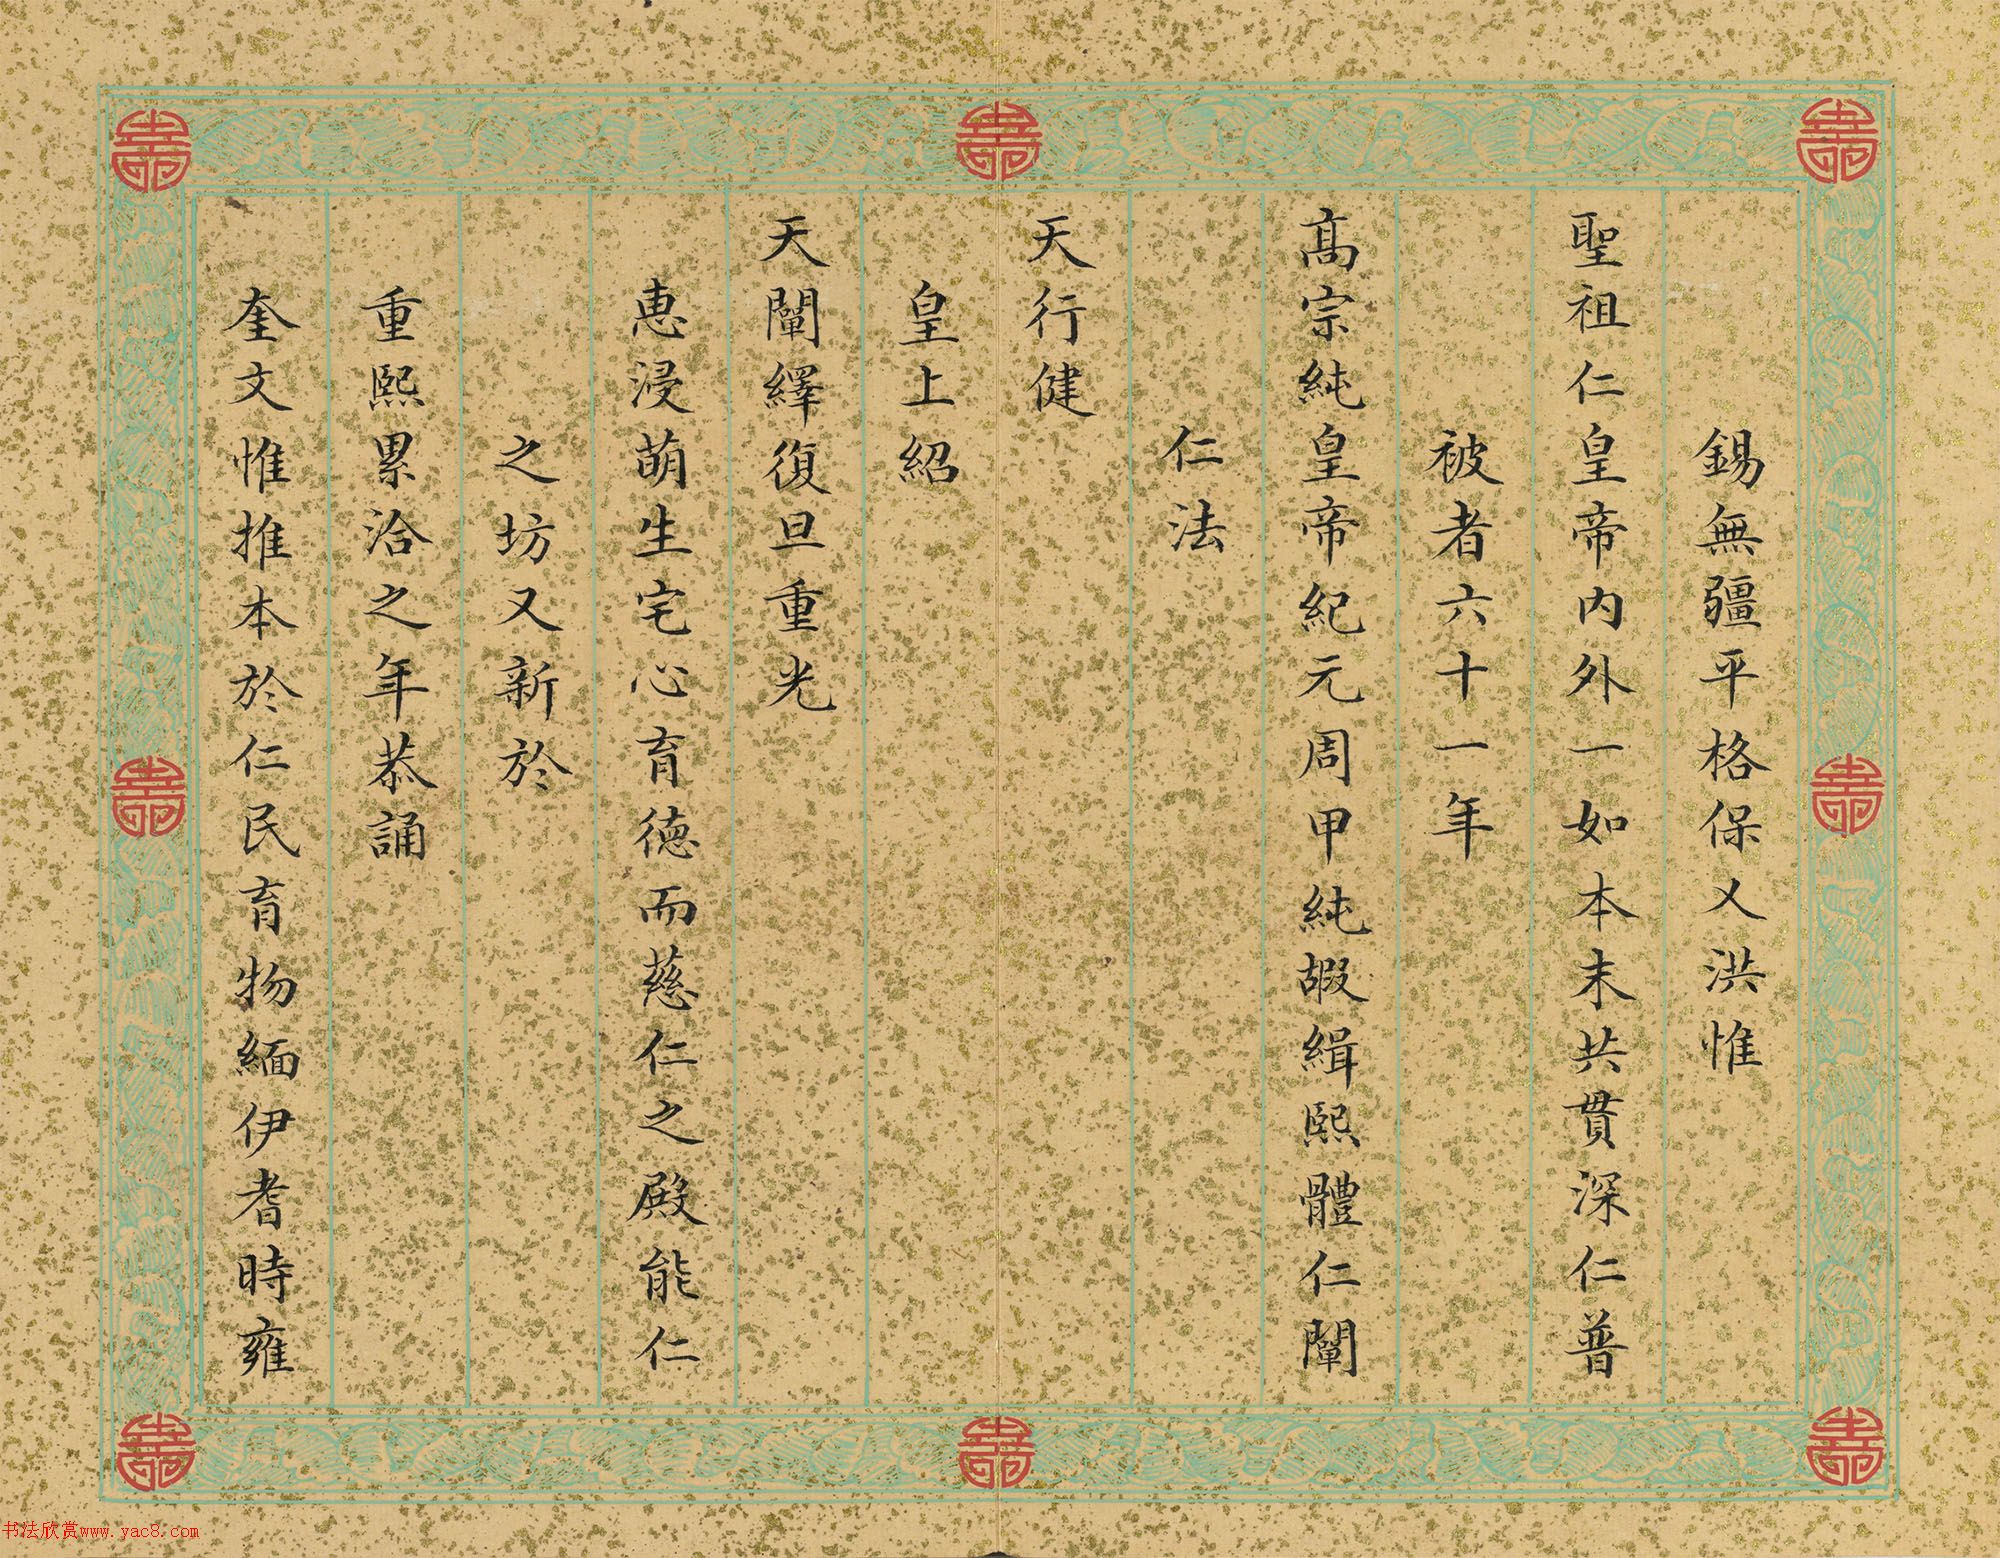 錫無疆平格保乂洪惟
聖祖仁皇帝內外一如本末共貫深仁普
被者六十一年
高宗純皇帝紀元周甲純嘏緝熙體仁闡
仁法
天行健
皇上紹
天闡繹復旦重光
惠浸萌生宅心育德而慈仁之殿能仁
之坊又新於
重熙累洽之年恭誦
奎文惟推本於仁民育物緬伊耆時雍
书法欣赏www.yac8.com